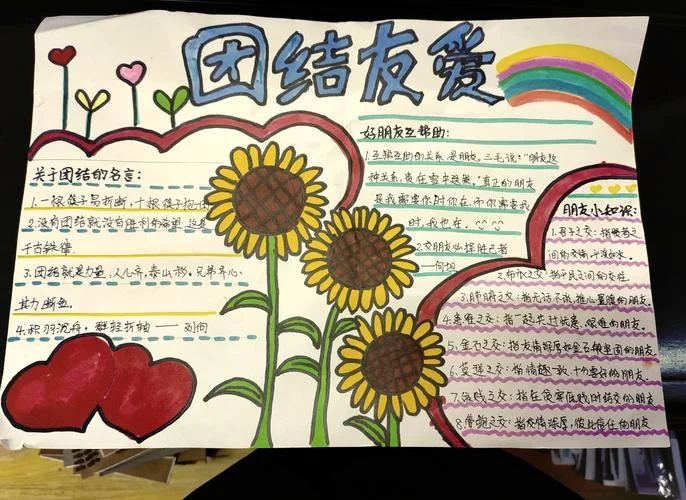 团结友爱
关于团结的名言:
1.一根筷子易折断,十根筷子抱
2.没有团结就没有胜利的希望,这是
千古铁律.
3.团结就是力量,人心齐,泰山移。兄弟齐心,
其力断金.
4.积羽沉舟.群轻折轴——刘向
好朋友互帮助:
1.互帮互助的关系是朋友,三毛说:"朋友这
种关系,贵在雪中送炭。"真正的朋友
是我需要你时你在,而你需要我
时,我也在。^^ ^^
2.交朋友必择胜己者
——何坦
朋友小知识:
1.君子之交:指贤者之
间的交情,平淡如水。
2.布衣之交:指平民之间的交往
3.肺腑之交:指无话不说,推心置腹的朋友.
4.患难之交:指一起共过忧患、境遇的朋友.
5.金石之交:指友情深厚如金石般坚固的朋友
6.莫逆之交:指情趣一致、十分要好的朋友.
7.贫贱之交:指在贫穷低贱时结交的朋友
8.管鲍之交:指友情深厚,彼此信任的朋友